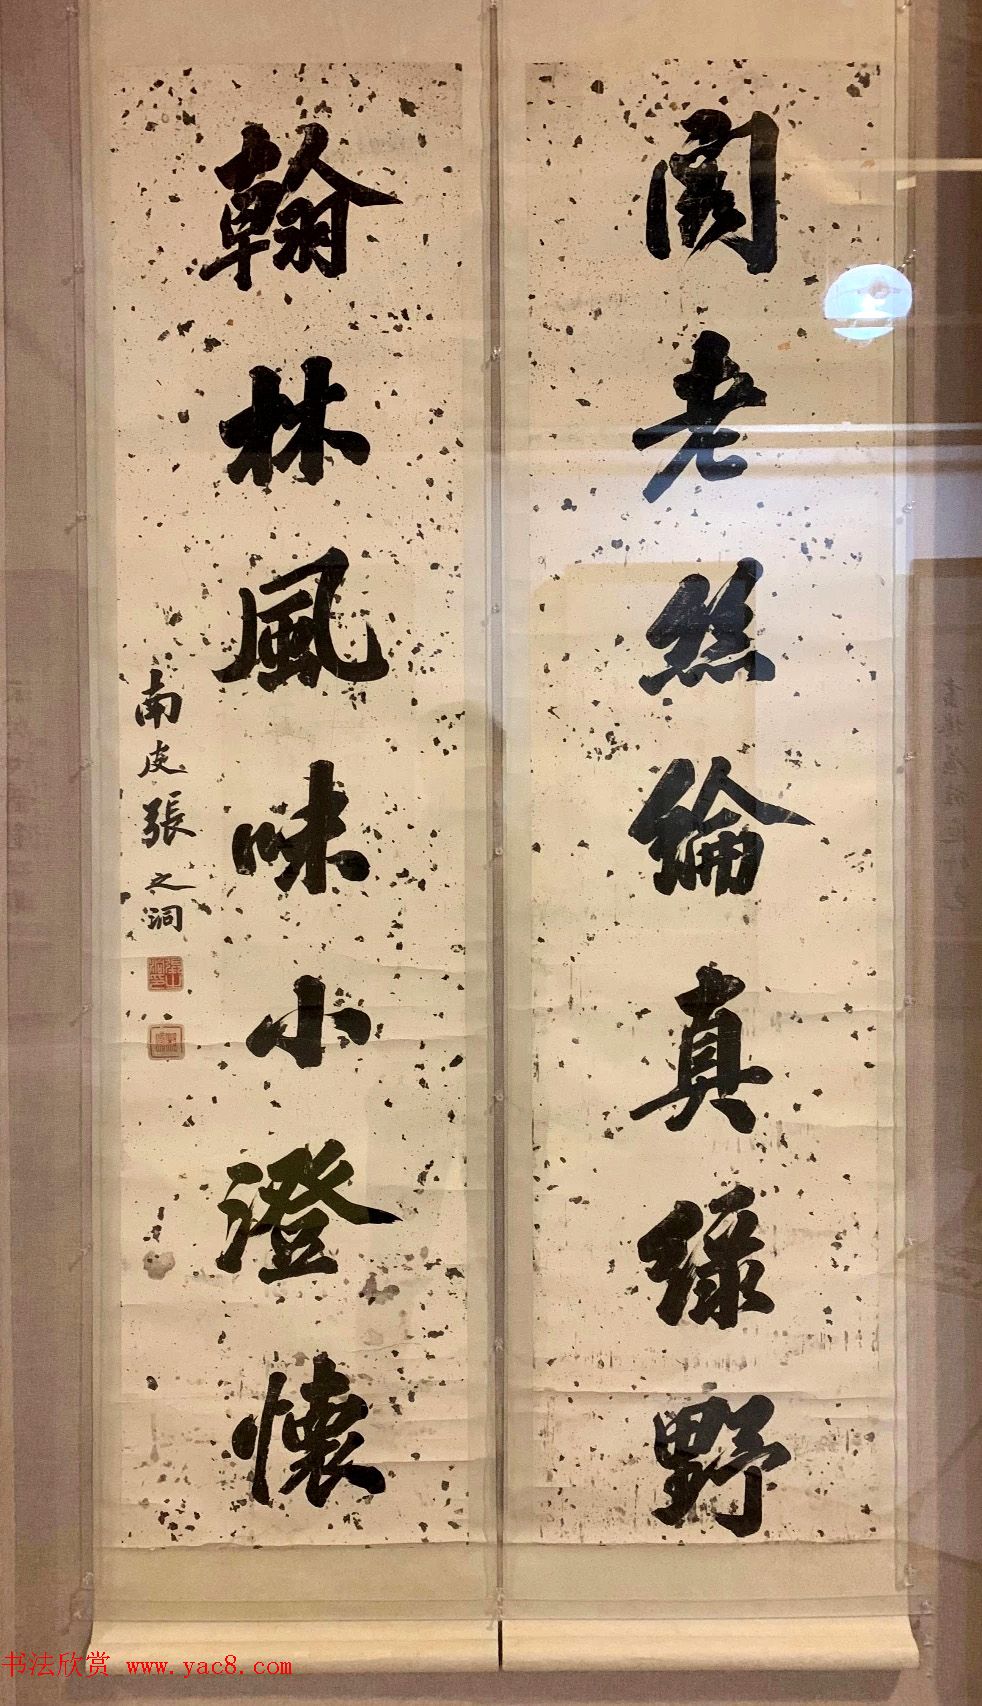 閣老絲綸真綠野
翰林風味小澄懷
南皮張之洞
书法欣赏 www.yac8.com